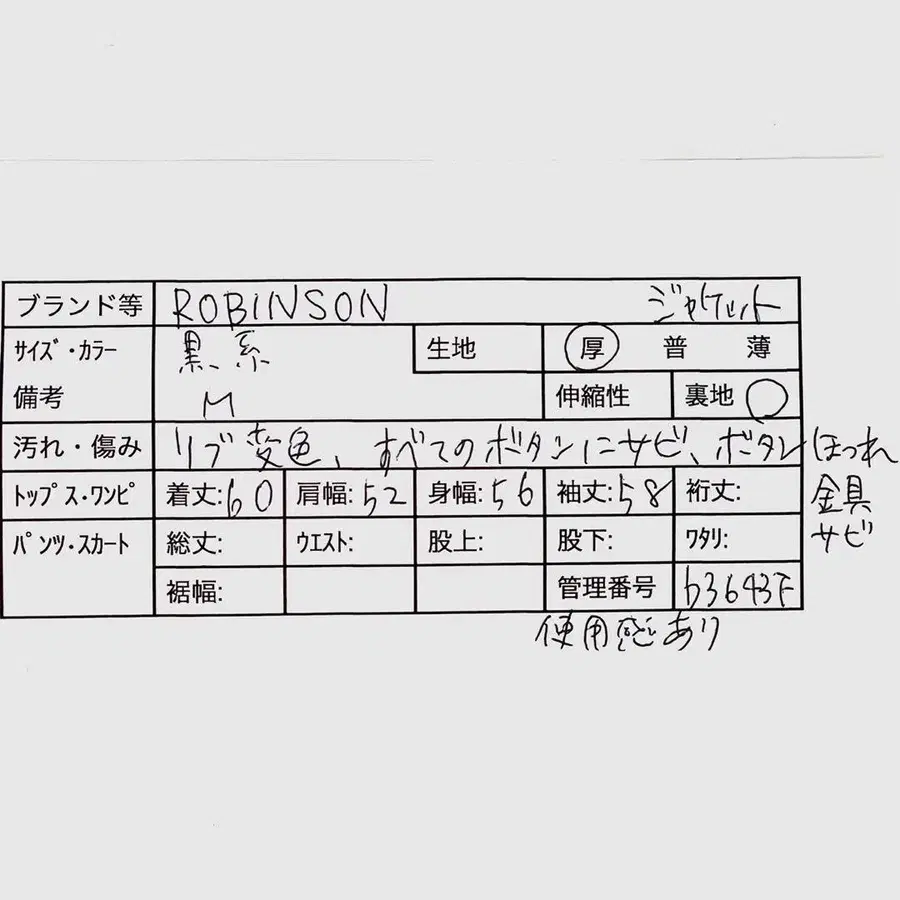 ブランド等 ROBINSON ジャケット
サイズ・カラー 黒、系 生地 厚 普 薄
備考 M 伸縮性 裏地 ○
汚れ・傷み リブ変色、すべてのボタンにサビ、ボタンほつれ
トップス・ワンピ 着丈:60 肩幅:52 身幅:56 袖丈:58 裄丈: 金具
パンツ・スカート 総丈: ウエスト: 股上: 股下: ワタリ: サビ
裾幅: 管理番号 b3643F
使用感あり